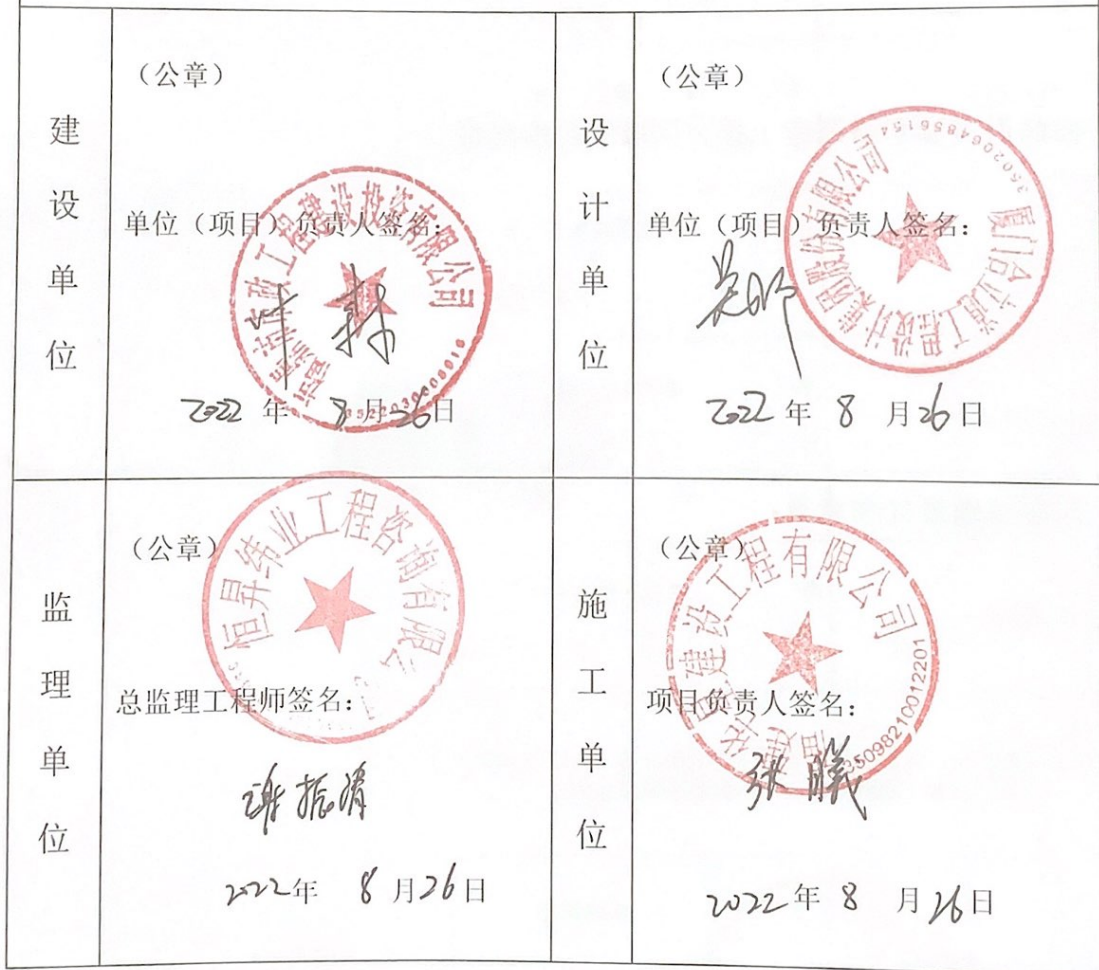 建设单位
（公章）
市政工程建设投资有限公司
单位（项目）负责人签名：
2022 年 8 月 26 日
设计单位
（公章）
厦门合立道工程设计集团股份有限公司
3502064856154
单位（项目）负责人签名：
2022 年 8 月 26 日
监理单位
（公章）
恒昇纬业工程咨询有限公
总监理工程师签名：
谢振清
2022 年 8 月 26 日
施工单位
（公章）
建设工程有限公司
35098210012201
项目负责人签名：
张曦
2022 年 8 月 26 日